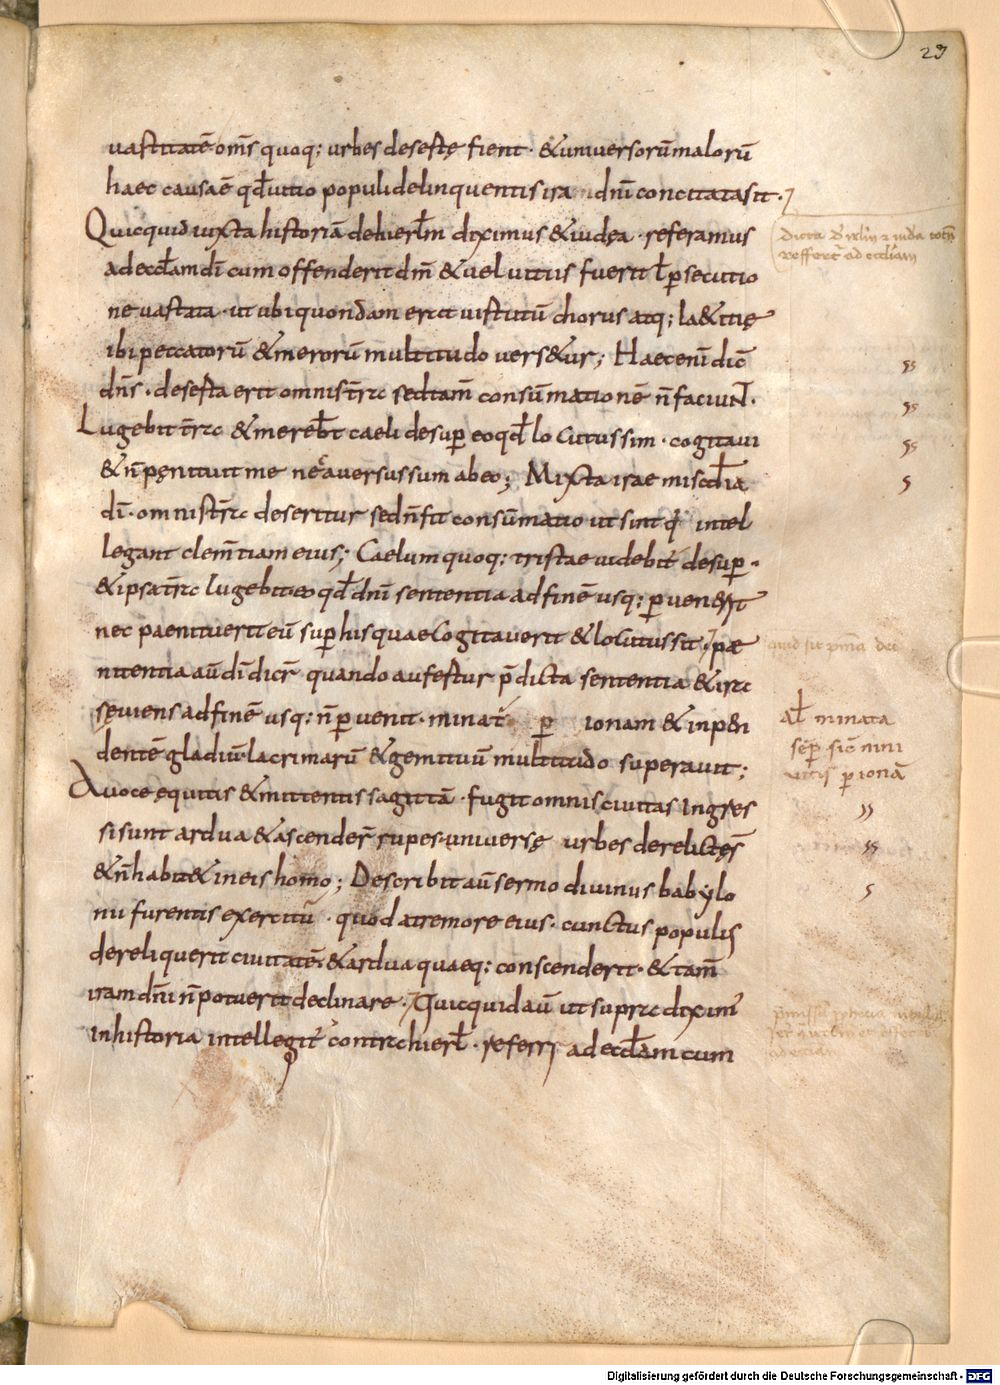 23
uastitatē om̄s quoq; urbes desertę fient · &uniuersorū malorū
haec causaē qđ uitio populi delinquentis ira dn̄i concitata sit ·
Quicquid iuxta historiā dehierl̄m diximus &iudęa · referamus
ad eccl̄am dī cum offenderit dm̄ &uel uitiis fuerit l̄ p̱secutio
ne uastata · ut ubi quondam erat uirtutū chorus atq; la&itię
ibi peccatorū &merorū multitudo uers&ur; Haec enī dic̄
dn̄s · deserta erit omnis tr̄a sed tam̄ consūmationē n̄ faciam ·
Lugebit tr̄a &mereb̄t caeli desup̱ eo qđ locutus sim · cogitaui
&n̄ pęnituit me nec auersus sum ab eo; Mixta irae mis̄cdia
dī · omnis tr̄a deseritur sed n̄ fit consūmatio ut sint q' intel
legant clem̄tiam eius; Caelum quoq; tristae uidebit' desup̱ ·
&ipsa tr̄a lugebit · eo qđ dn̄i sententia ad finē usq; p̱uen&
nec paenituerit eū sup̱ his quae cogitauerit &locutus sit · pae
nitentia aū dī dic̄r quando aufertur p̄dicta sententia &ira
sęuiens ad finē usq; n̄ p̱uenit · minat p̱ ionam &inpen
dentē gladiū · lacrimarū &gemituū multitudo superauit;
A uoce ęquitis &mittentis sagittā · fugit omnis ciuitas ingres
si sunt ardua &ascender̄ rupes · uniuersę urbes derelictęs
&n̄ habit& in eis homo; Describit aū sermo diuinus babylo
nii furentis exercitū · quod a tremore eius · cunctus populus
dereliquerit ciuitatē &ardua quaeq; conscenderit · &tam̄
iram dn̄i n̄ potuerit declinare · Quicquid aū ut supra dixim'
in historia intellegit' contra hierl̄ · referri ad eccl̄am cum
Al̄ minata
sep̱ sic nini
uitis p̱ ionā
Digitalisierung gefördert durch die Deutsche Forschungsgemeinschaft - DFG